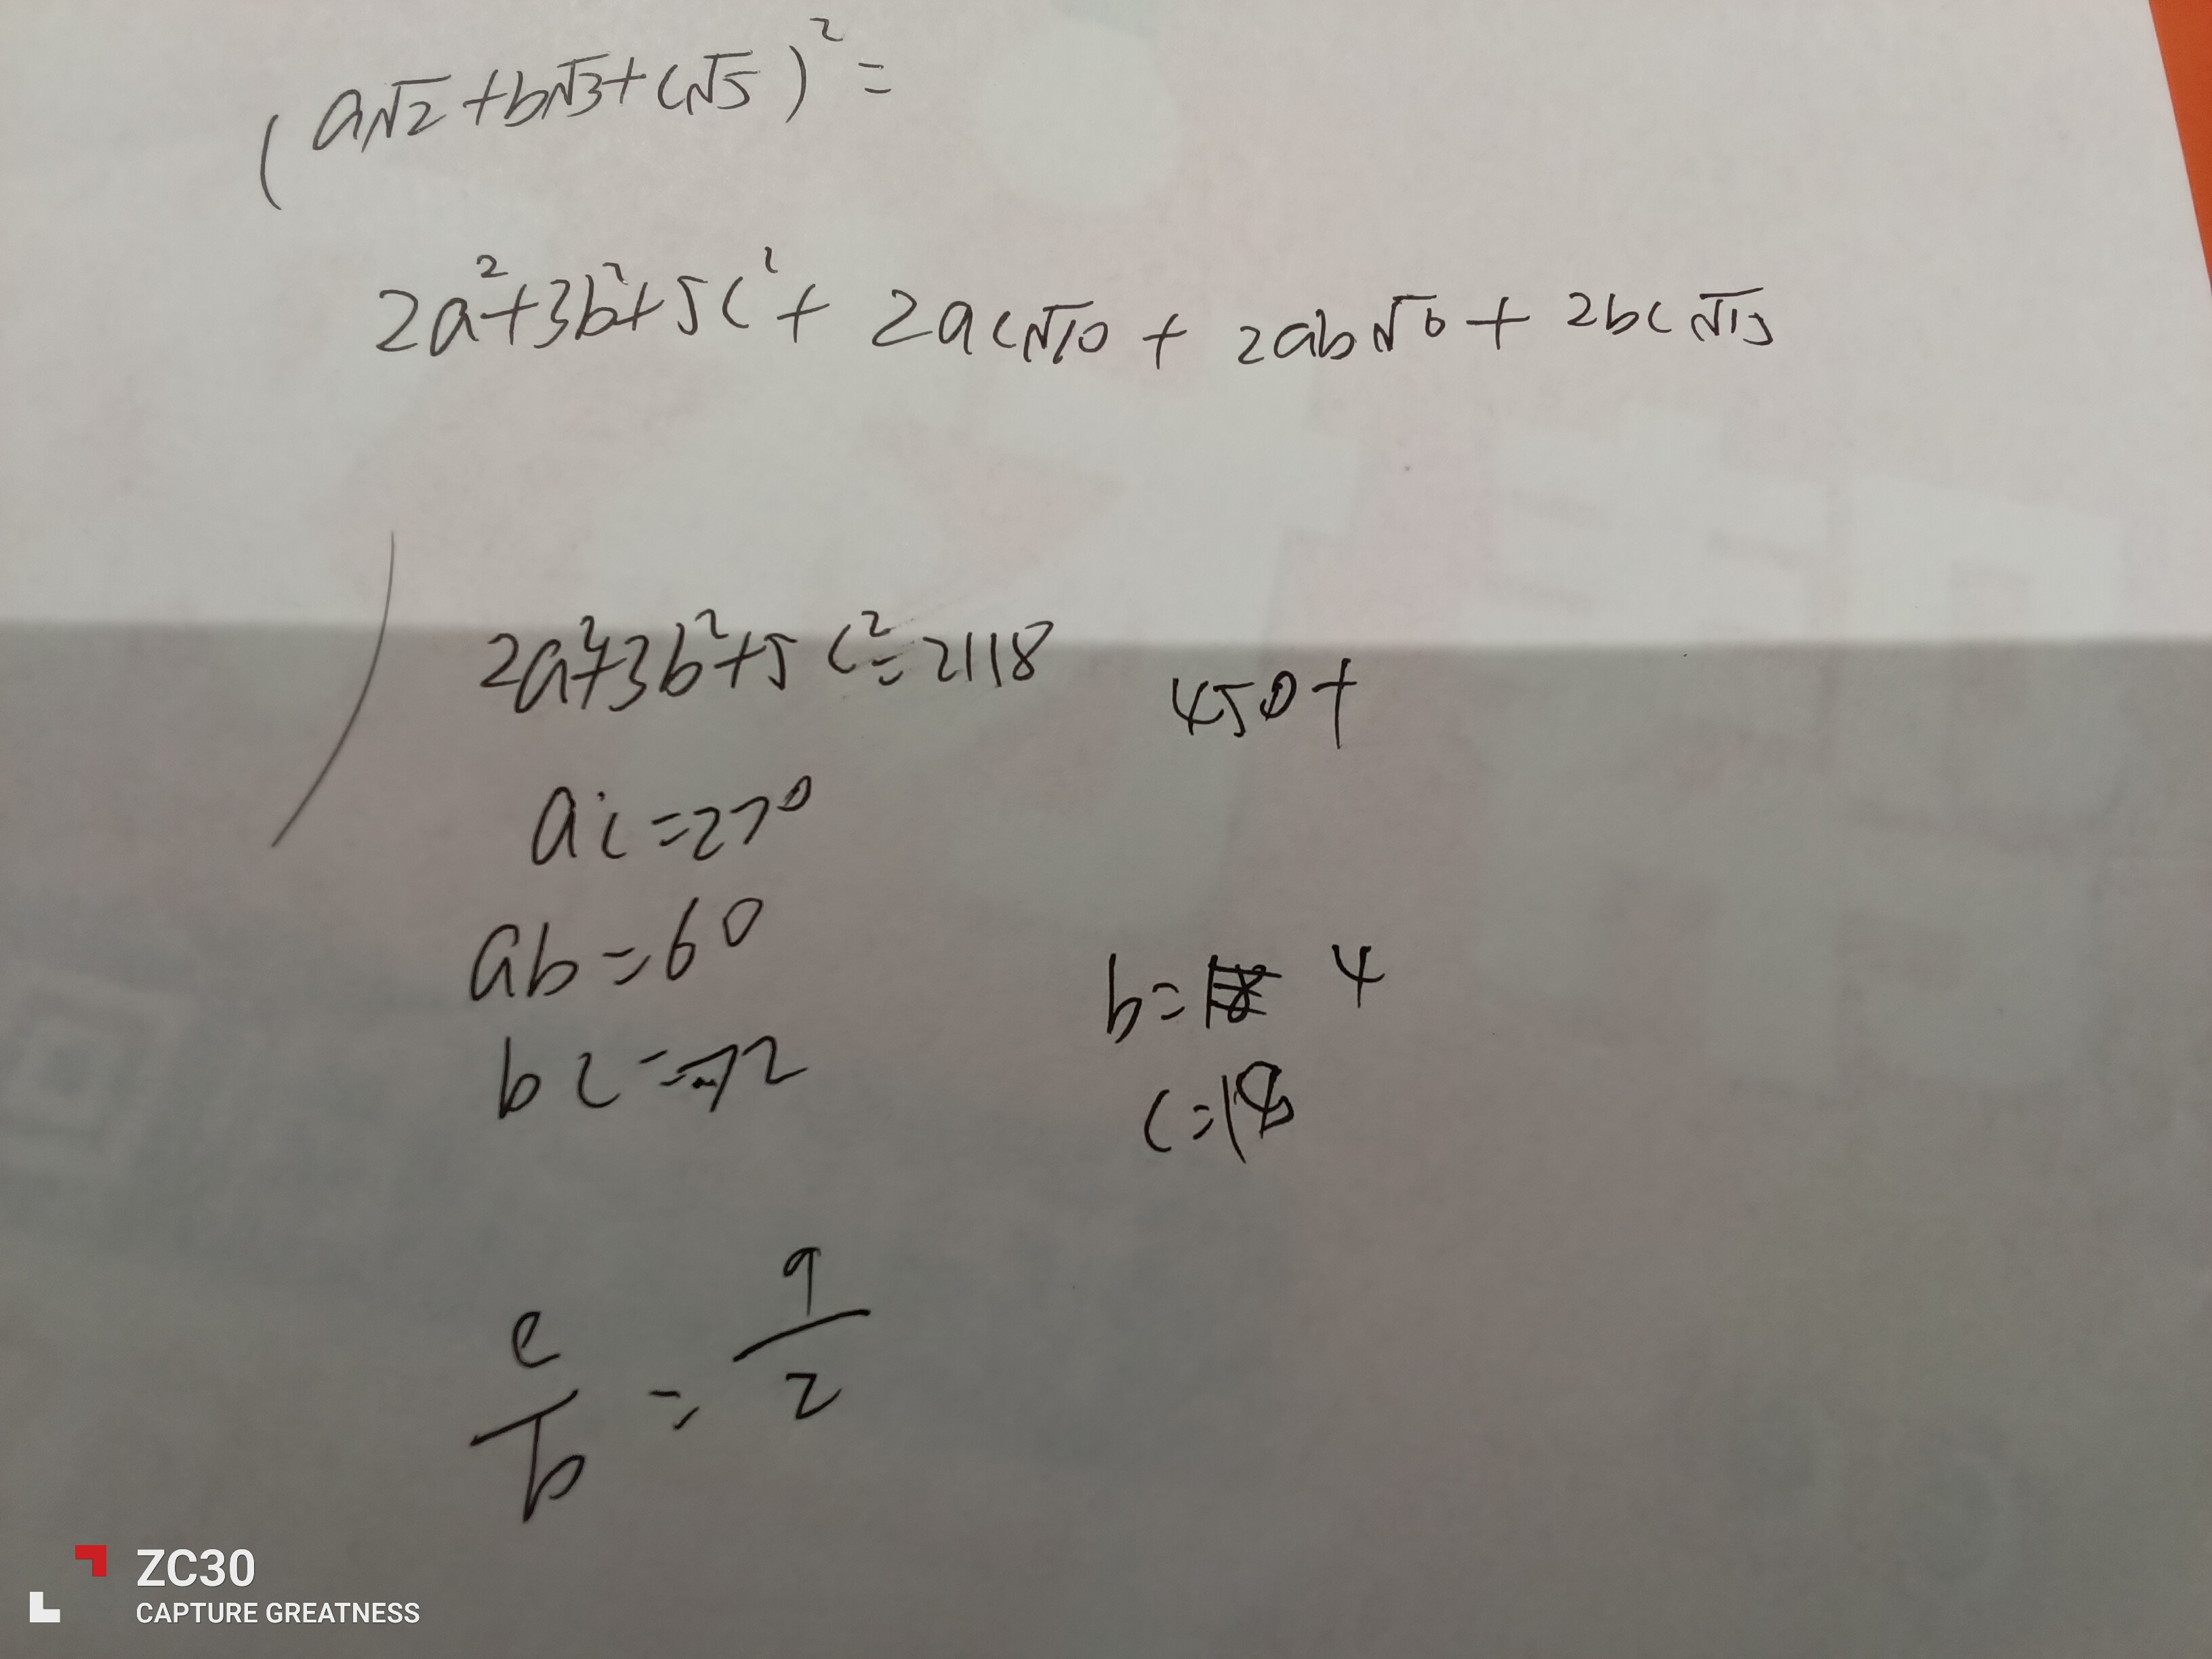 (a√2+b√3+c√5)²=
2a²+3b²+5c²+2ac√10+2ab√6+2bc√15
2a²+3b²+5c²=2118
450+
ac=270
ab=60
b= 4
bc=72
c=18
c/b=9/2
ZC30
CAPTURE GREATNESS